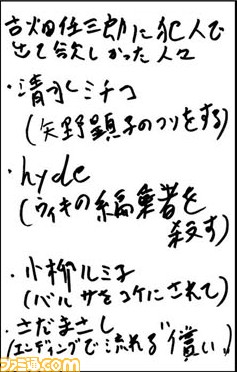 古畑任三郎に犯人で
出て欲しかった人々
・清水ミチコ
(矢野顕子のフリをする)
・hyde
(ウィキの編集者を
殺す)
・小柳ルミ子
(バルサをコケにされて)
・さだまさし
(エンディングで流れる"償い")
ファミ通.com